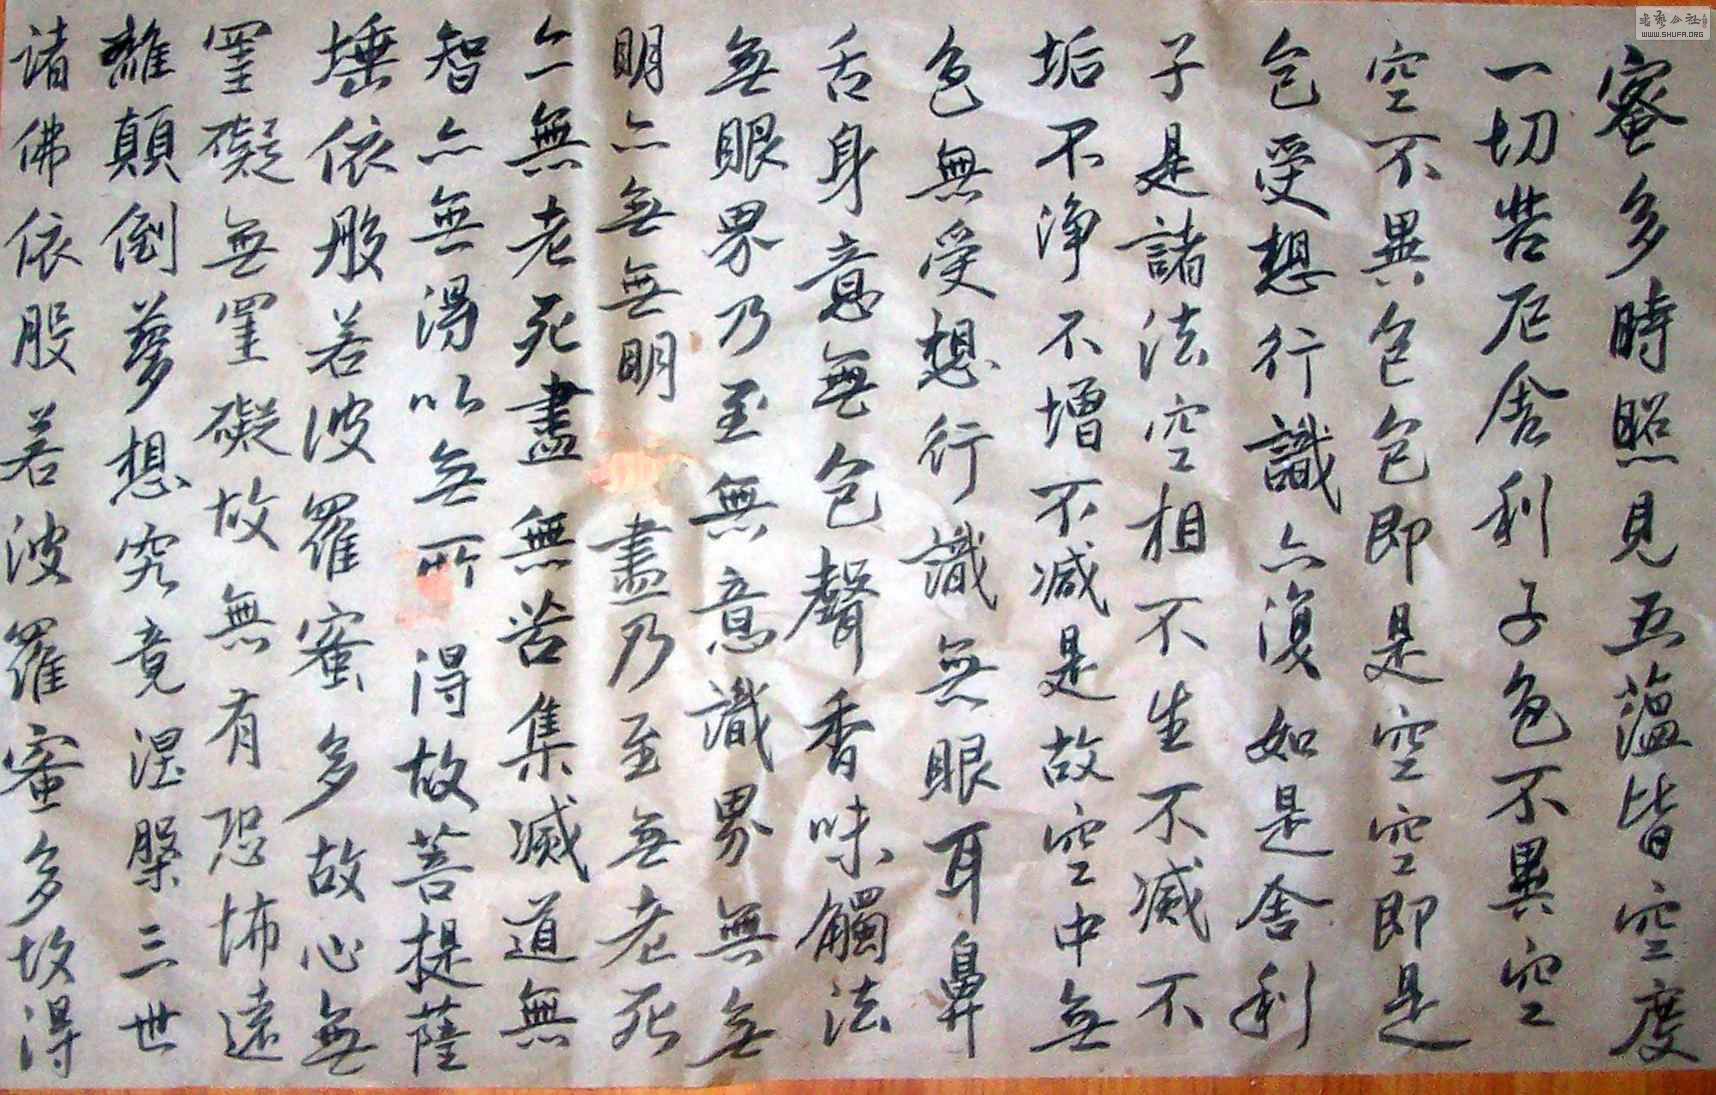 蜜多時照見五蘊皆空度
一切苦厄舍利子色不異空
空不異色色即是空空即是
色受想行識亦復如是舍利
子是諸法空相不生不滅不
垢不淨不增不減是故空中無
色無受想行識無眼耳鼻
舌身意無色聲香味觸法
無眼界乃至無意識界無無
明亦無無明盡乃至無老死
亦無老死盡無苦集滅道無
智亦無得以無所得故菩提薩
埵依般若波羅蜜多故心無
罣礙無罣礙故無有恐怖遠
離顛倒夢想究竟涅槃三世
諸佛依般若波羅蜜多故得
書藝公社
WWW.SHUFA.ORG